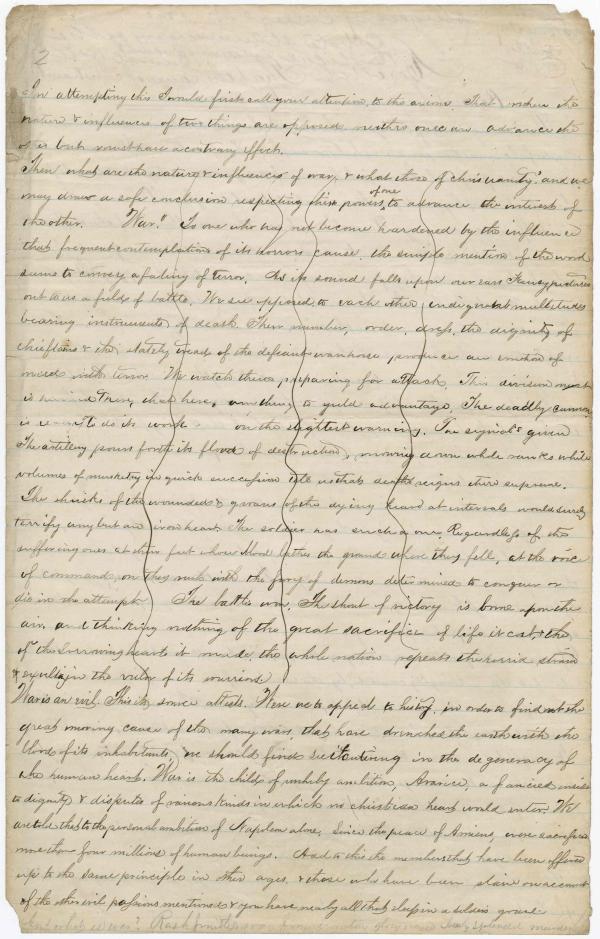 2
In attempting this I would first call your attention to the axiom That when the
nature & influences of two things are opposed neither one can advance the
but must have a contrary effect.
Then what are the nature & influences of war, & what those of christianity? and we
may draw a safe conclusion respecting the powers of one to advance the interest of
the other. "War." To one who has not become hardened by the influence
that frequent contemplation of its horrors cause, the simple mention of the word
seems to convey a feeling of terror. As its sound falls upon our ears Fancy pictures
out to us a field of battle. We see opposed to each other two great multitudes
bearing instruments of death. Their number, order, dress, the dignity of
chieftains & the stately tread of the defiant warhorse, produce an emotion of
mixed with terror. We watch them preparing for attack. This division
is there, that here, to yield advantage. The deadly cannon
is to do its work on the slightest warning. The signal's given
The artillery pours forth its flood of destruction, mowing down whole ranks while
volumes of musketry in quick succession tell us that death reigns there supreme.
The shrieks of the wounded & groans of the dying heard at intervals would surely
terrify any but an iron heart. The soldier has such a one. Regardless of the
suffering ones at their feet whose blood bathes the ground where they fell, at the voice
of command, on they rush with the fury of demons determined to conquer or
die in the attempt. The battle won, The shout of victory is borne upon the
air, and thinking nothing of the great sacrifice of life it cost & the
of the sorrowing hearts it made, the whole nation repeats the horrid strain
& exults in the valor of its warriors.
War is an evil. This its source attests. Were we to appeal to history, in order to find out the
great moving cause of the many wars, that have drenched the earth with the
blood of its inhabitants, we should find it centering in the degeneracy of
the human heart. War is the child of unholy ambition, Avarice, a fancied
to dignity & disputes of various kinds in which no christian heart would enter. We
are told that to the personal ambition of Napoleon alone, since the peace of Amiens, were sacrificed
more than four millions of human beings. Add to this the numbers that have been offered
up to the same principle in other ages, & those who have been slain on account
of the other evil passions mentioned & you have nearly all that sleep in a soldiers grave
And what is war?